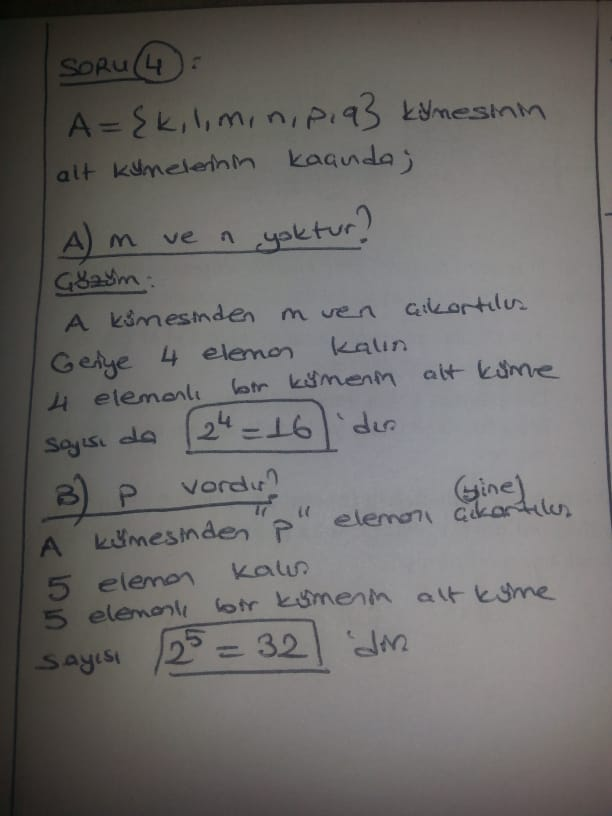 SORU 4 :
A = {k, l, m, n, p, q} kümesinin
alt kümelerinin kaçında;
A) m ve n yoktur?
Çözüm:
A kümesinden m ve n çıkartılır
Geriye 4 eleman kalır
4 elemanlı bir kümenin alt küme
sayısı da 2⁴ = 16 'dır
B) p vardır?
(yine)
A kümesinden "p" elemanı çıkartılır
5 eleman kalır
5 elemanlı bir kümenin alt küme
sayısı 2⁵ = 32 'dir